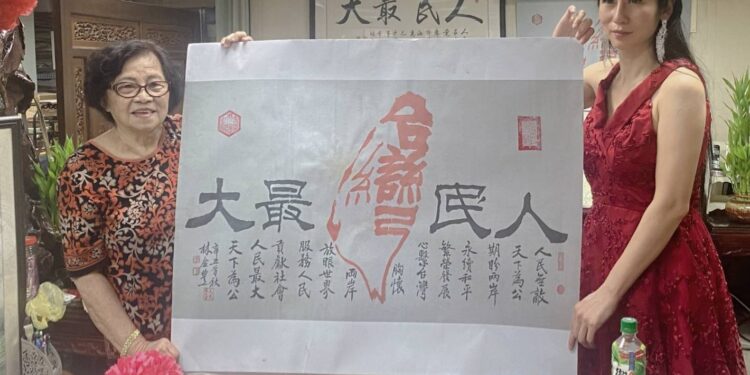 人民最大
人民
台灣
最大
人民無敵
天下為公
期盼兩岸
永續和平
繁榮發展
心繫台灣
胸懷
兩岸
放眼世界
服務人民
貢獻社會
人民最大
天下為公
辛丑年秋
林金